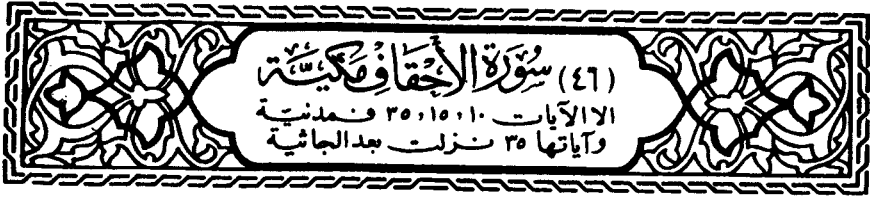 (٤٦) سُورَةُ الأَحْقَافِ مَكِّيَّة
الا الآيات ١٠، ١٥، ٣٥ فمدنيّة
وآياتها ٣٥ نزلت بعد الجاثية